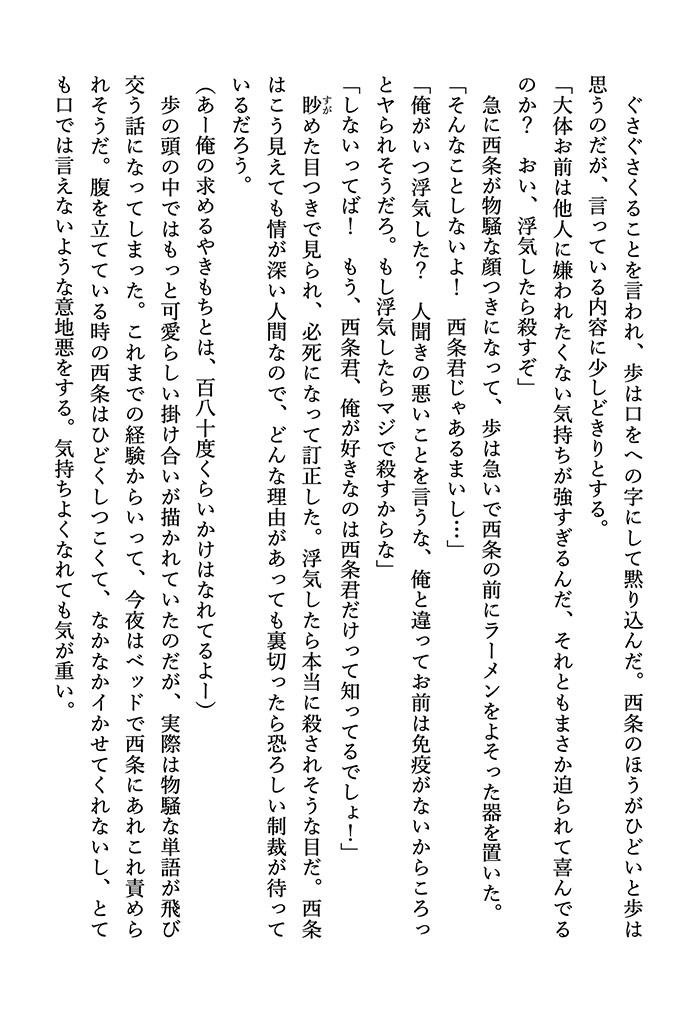 ぐさぐさくることを言われ、歩は口をへの字にして黙り込んだ。西条のほうがひどいと歩は
思うのだが、言っている内容に少しどきりとする。
「大体お前は他人に嫌われたくない気持ちが強すぎるんだ、それともまさか迫られて喜んでる
のか？　おい、浮気したら殺すぞ」
　急に西条が物騒な顔つきになって、歩は急いで西条の前にラーメンをよそった器を置いた。
「そんなことしないよ！　西条君じゃあるまいし…」
「俺がいつ浮気した？　人聞きの悪いことを言うな、俺と違ってお前は免疫がないからころっ
とヤられそうだろ。もし浮気したらマジで殺すからな」
「しないってば！　もう、西条君、俺が好きなのは西条君だけって知ってるでしょ！」
　眇すがめた目つきで見られ、必死になって訂正した。浮気したら本当に殺されそうな目だ。西条
はこう見えても情が深い人間なので、どんな理由があっても裏切ったら恐ろしい制裁が待って
いるだろう。
（あー俺の求めるやきもちとは、百八十度くらいかけはなれてるよー）
　歩の頭の中ではもっと可愛らしい掛け合いが描かれていたのだが、実際は物騒な単語が飛び
交う話になってしまった。これまでの経験からいって、今夜はベッドで西条にあれこれ責めら
れそうだ。腹を立てている時の西条はひどくしつこくて、なかなかイかせてくれないし、とて
も口では言えないような意地悪をする。気持ちよくなれても気が重い。